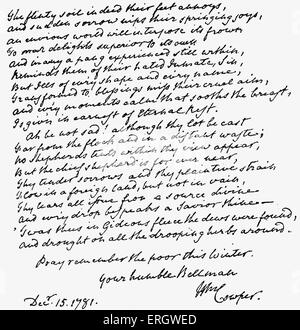 The flinty soil indeed their feet annoys,
and sudden sorrow nips their springing joys,
An envious world will interpose its frown
To mar delights superior to its own,
and many a pang experienced still within,
Reminds them of their hated Inmate, Sin;
But Ills of ev'ry shape and ev'ry name
Transformed to blessings miss their cruel aim,
and ev'ry moments calm that sooths the breast,
Is giv'n in earnest of Eternal Rest.
Ah be not sad! although thy lot be cast
Far from the flock and in a distant waste;
No shepherds tents within thy view appear,
But the chief shepherd is for ever near;
Thy tender sorrows and thy plaintive strain
Flow in a foreign land, but not in vain,
Thy tears all issue from a source divine
and ev'ry drop bespeaks a Savior thine—
'Twas thus in Gideons fleece the dews were found,
and drought on all the drooping herbs around.
Pray remember the poor this Winter.
Your humble Bellman
Wm Cowper.
Decr. 15. 1781.
alamy
alamy